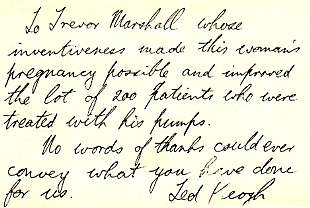 To Trevor Marshall whose
inventiveness made this woman's
pregnancy possible and improved
the lot of 200 patients who were
treated with his pumps.
No words of thanks could ever
convey what you have done
for us. Ted Keogh